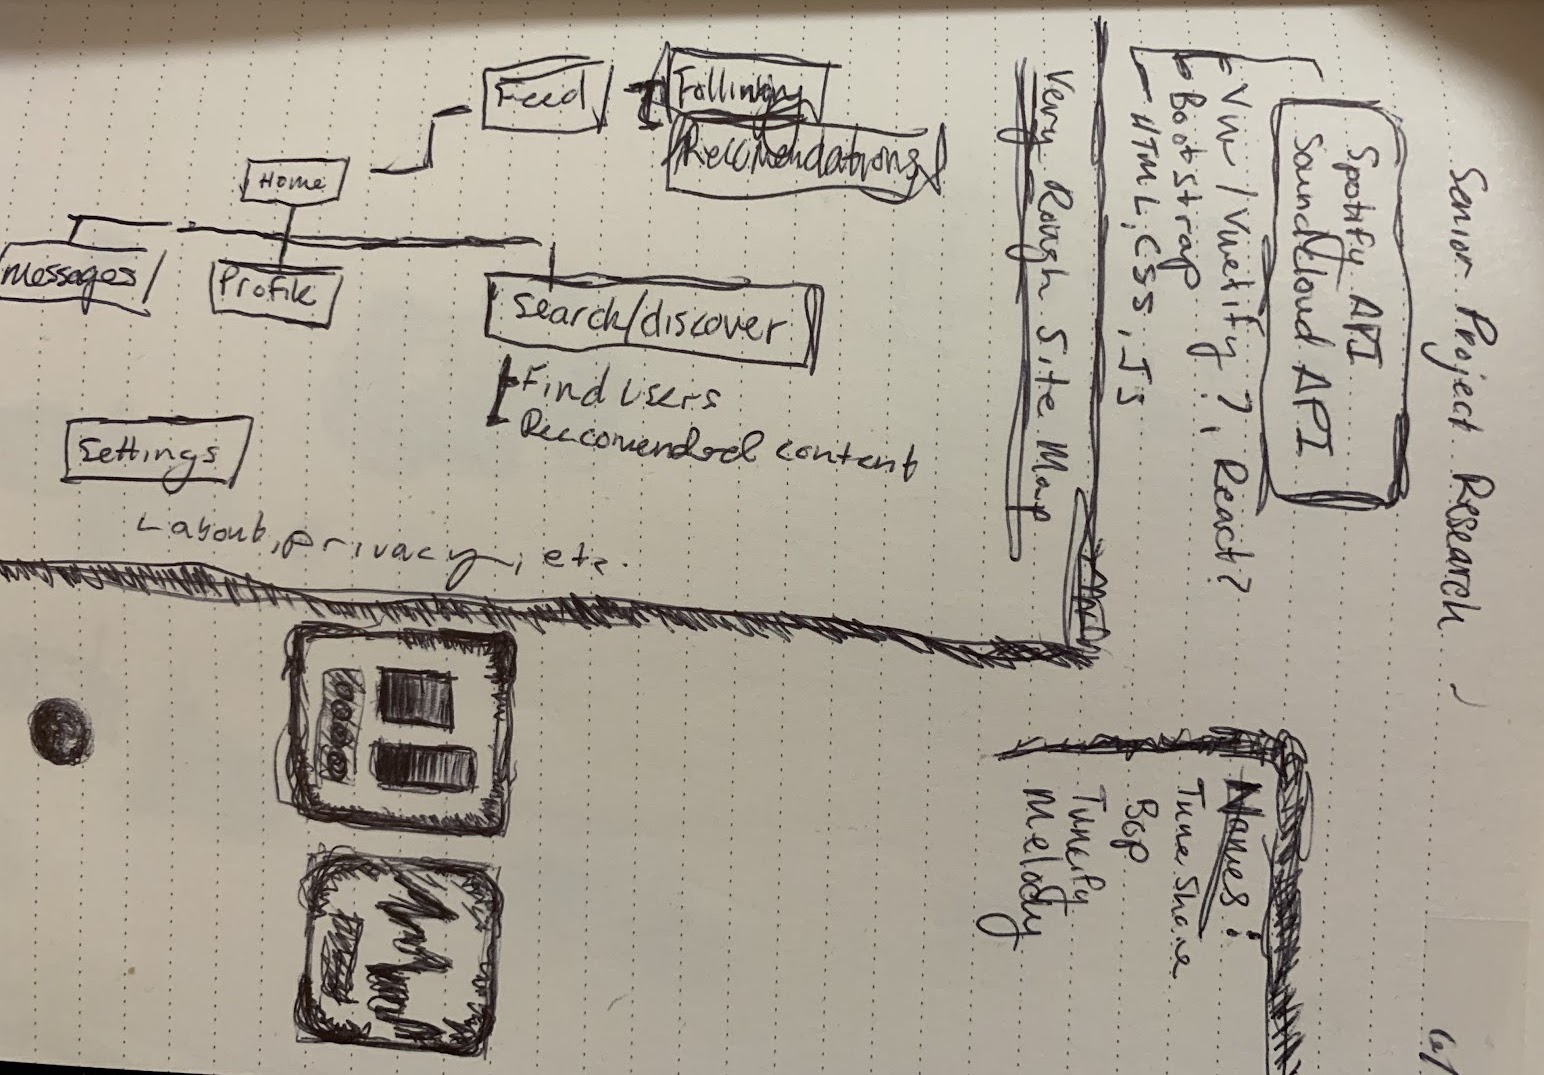 Senior Project Research
Spotify API
Soundcloud API
Vue / Vuetify?, React?
Bootstrap
HTML, CSS, JS
Very Rough Site Map
Feed
Following
Recomendations
Home
Messages
Profile
Search/discover
Find Users
Reccomended content
Settings
Layout, privacy, etc.
Names:
TuneShare
Bop
Tuneify
Melody